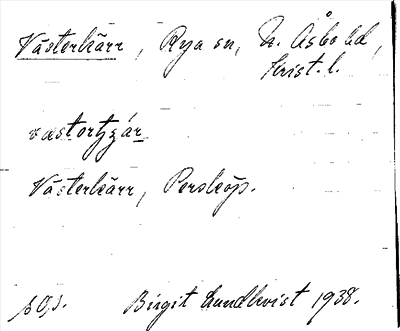 Västerkärr, Rya sn, N. Åsbo hd,
Krist. l.
västertjär
Västerkärr, Perstorp.
s 0,3.
Birgit Lundkvist 1938.